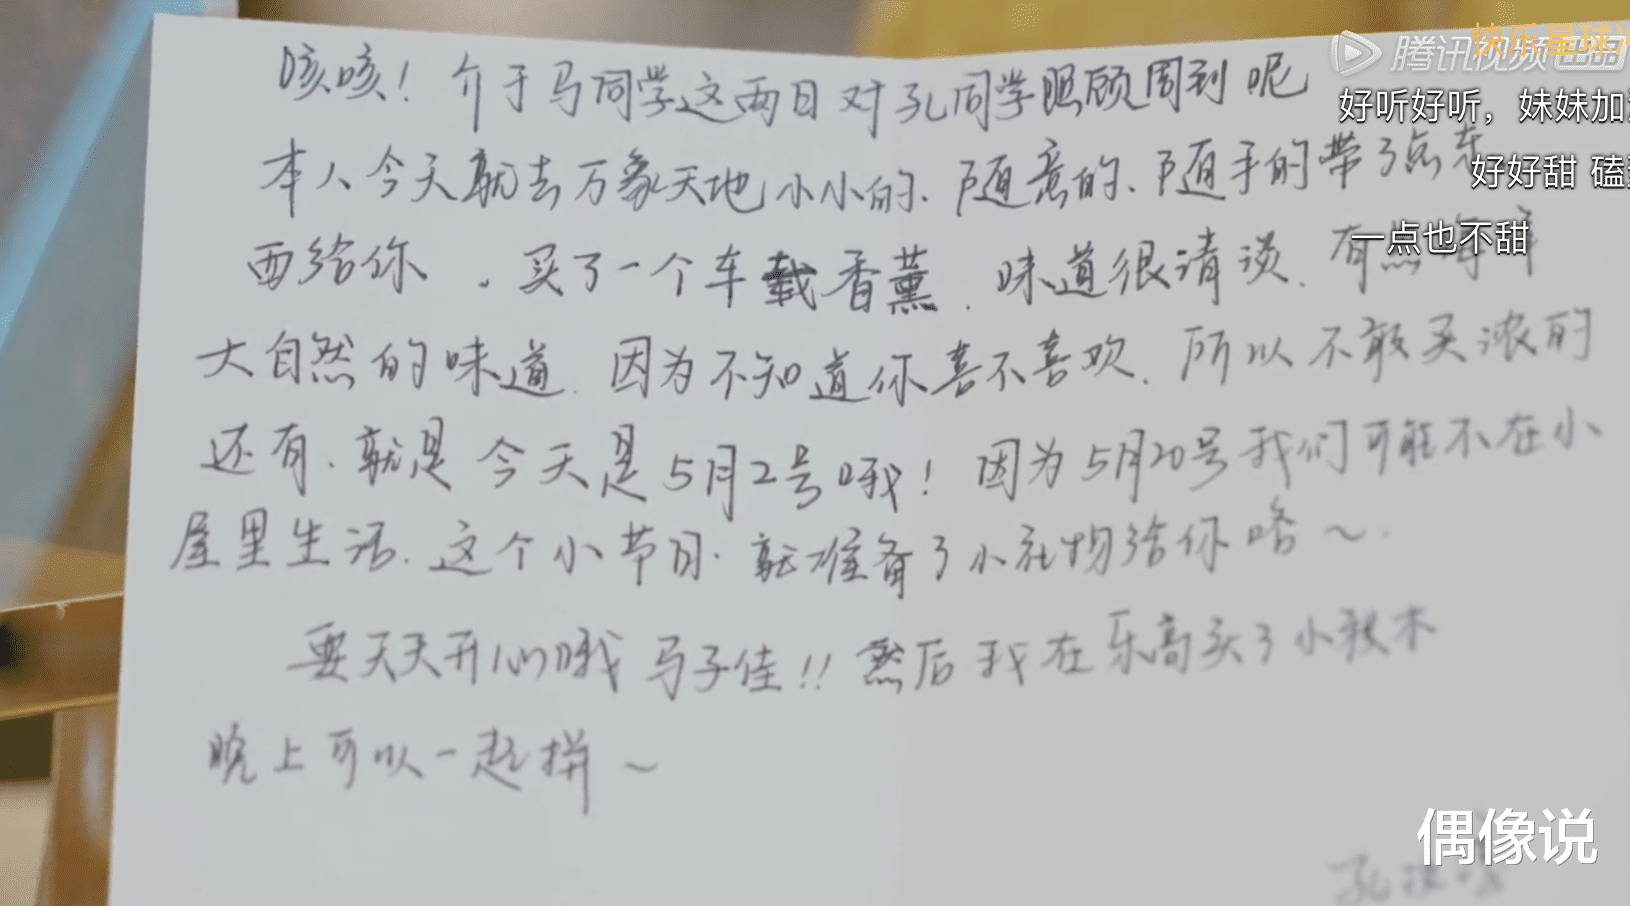 咳咳！介于马同学这两日对孔同学照顾周到呢
本人今天就去万象天地小小的、随意的、随手的带了点东
西给你。买了一个车载香薰、味道很清淡、有点
大自然的味道、因为不知道你喜不喜欢、所以不敢买浓的
还有、就是今天是5月2号哦！因为5月20号我们可能不在小
屋里生活、这个小节目、就准备了小礼物给你咯～.
要天天开心哦马子佳!! 然后我在乐高买了小积木
晚上可以一起拼～
孔
快乐星球
腾讯视频 出品
好听好听，妹妹加
好好甜 磕
一点也不甜
偶像说